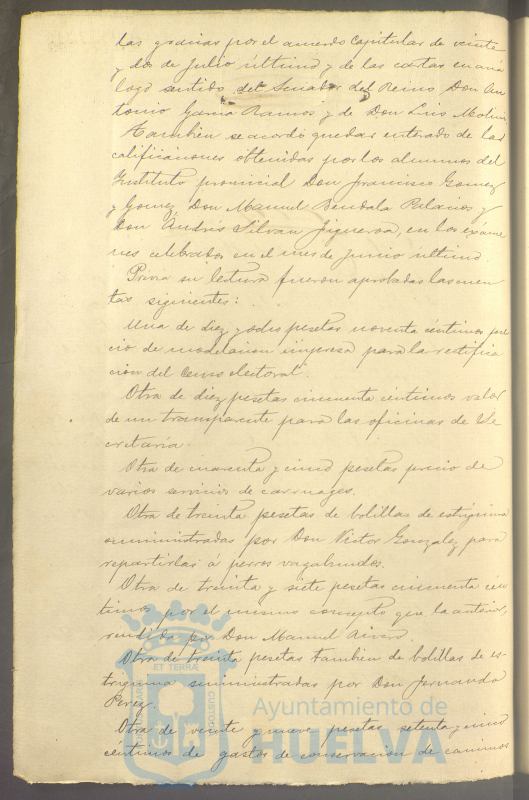 las gracias por el acuerdo Capitular de veinte
y dos de Julio último y de las cartas en aná
logo sentido del Senador del Reino Don An
tonio Garcia Ramos y de Don Luis Molini
Tambien se acordó quedar enterado de las
calificaciones obtenidas por los alumnos del
Instituto provincial Don Francisco Gomez
y Gomez Don Manuel Palacios y
Don Andrés Silvan Figueroa, en los exáme
nes celebrados en el mes de Junio último.
Previa su lectura fueron aprobadas las cuen
tas siguientes:
Una de diez y ocho pesetas noventa céntimos pre
cio de modelacion impresa para la rectifica
cion del censo electoral.
Otra de diez pesetas cincuenta céntimos valor
de un transparente para las oficinas de Se
cretaría.
Otra de cuarenta y cinco pesetas precio de
varios servicios de carruages.
Otra de treinta pesetas de bolillas de estrignina
suministradas por Don Victor Gonzalez para
repartirlas á perros vagabundos.
Otra de treinta y siete pesetas cincuenta cén
timos por el mismo concepto que la anterior,
rendida por Don Manuel
Otra de treinta pesetas tambien de bolillas de es-
trignina suministradas por Don Fernando
Perez.
Otra de veinte y nueve pesetas setenta y cinco
céntimos de gastos de conservacion de caminos
ET TERRA
Ayuntamiento de
HUELVA